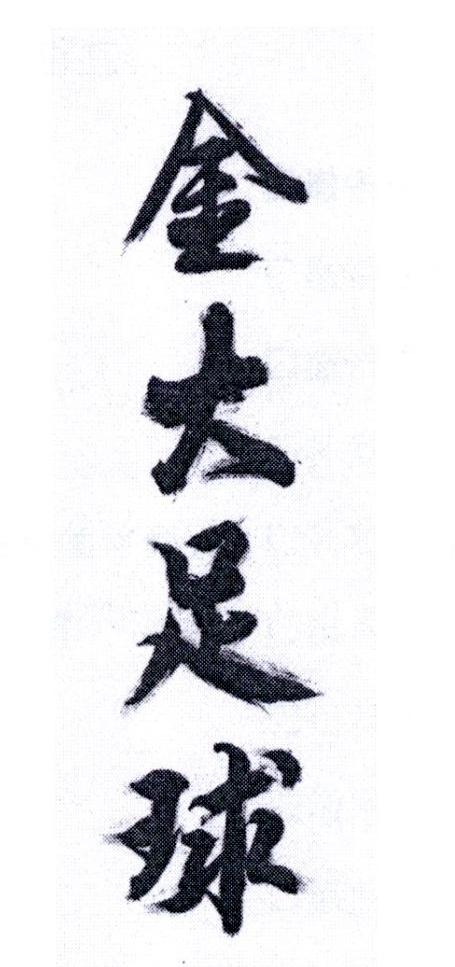 金大足球